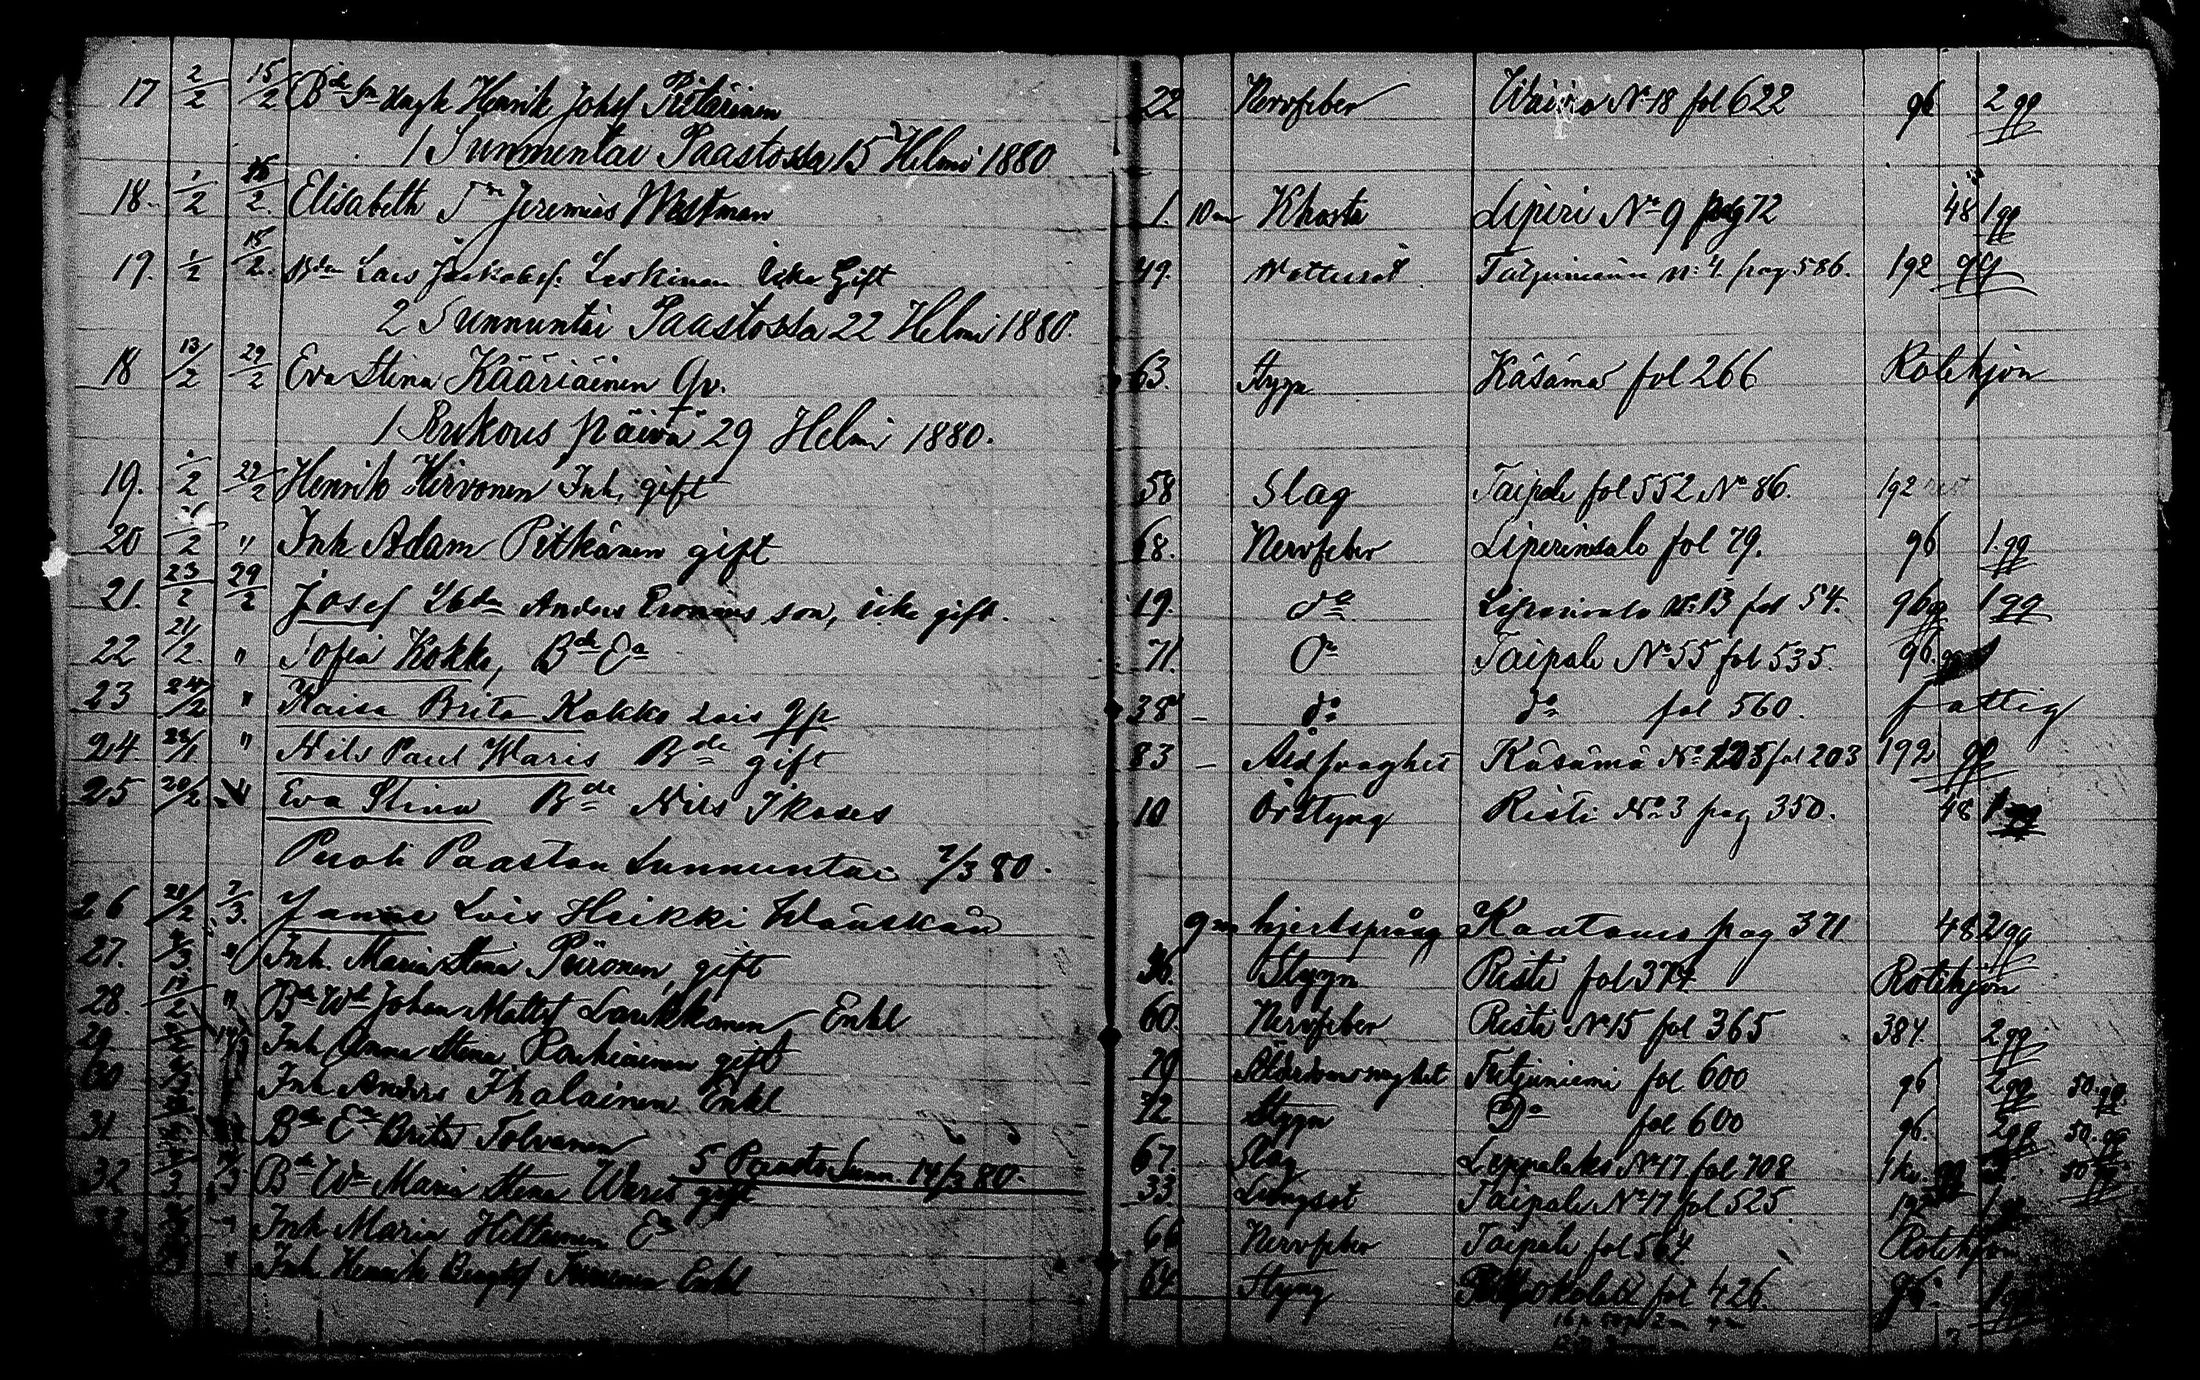 17 2/2 15/2 Bde Sn Yngk Henrik Johef Piitäinen 22 Nervfeber Waivio No 18 fol 622 96 2 qq
1 Sunnuntai Paastossa 15 Helmi 1880
18. 1/2 15/2. Elisabeth Jeremias Westman 1. 10 m Khosta Liperi No 9 pag 72 48 1 qq
19. 1/2 15/2. Bdn Lars Jackobsf. Leskinen Icke Gift 49. Wattusot Tutjuniemi N: 4. pag. 586. 192 qq
2 Sunnuntai Paastossa 22 Helmi 1880.
18 13/2 29/2 Eva Stina Kääriäinen Qv. 63. Stygn Käsämä fol 266 Rotehjon
1 Rukous päivä 29 Helmi 1880.
19. 1/2 22/2 Henrik Hirvonen Inh. gift 58 Slag Taipale fol 552 No 86. 192 rest
20 /2 " Inh Adam Pitkänen gift 68. Nervfeber Liperinsalo fol 79. 96 1 qq
21. 23/2 29/2 Josef Anders Eronens son, icke gift. 19. do Liperinsalo No: 13 fol 54. 96 qq 1 qq
22 21/2. " Sofia Kokko, Bde Ea 71. Do Taipale No 55 fol 535. 96.
23 24/2 " Kaisa Brita Kokko lois qp 38 - do do fol 560. fattig
24. 28/1 " Nils Paul Waris Bde gift 83 - Ålds svaghet Käsämä No fol 203 192 qq
25 20/2 " Eva Stina Bde Nils Ikoses 10 Bröstyng Risti No 3 pag 350. 48 1
Puoli Paaston Sunnuntai 7/3 80.
26 21/2 7/3. Janne Lois Heikki Wäuskän 9 m hjertsprång Kaatamo pag 371 48 2 qq
27. /3 " Inh. Maria Stina Piironen, gift 36. Stygn Risti fol 374 Rotehjon
28. 17/2 " Bde Wd Johan Mattsf Laukkanen Enkl 60. Nervfeber Risti No 15 fol 365 384. 2 qq
29 Inh Anna Stina Rauhiainen gift 79 Ålderdomssvaghet Tutjuniemi fol 600 96 2 qq 50. qq.
30 Inh Anders Ihalainen Enkl 72 Stygn Do fol 600 96. 2 qq 50. qq
31 Bde Ea Brita Tolvanen 67. Slag Leppälaks No 17 fol 708
5 Paasto Sunn. 14/3 80.
32 /3 Bde Wn Maria Stina Waris gift 33. Lungsot Taipale No 17 fol 525. 192 1 qq
33 Inh Maria Hiltunen Ea 66 Nervfeber Taipale fol 564 Rotehjon
Inh Henrik Bengtsf Enkl 64. Styng fol 426. 96. 1 qq